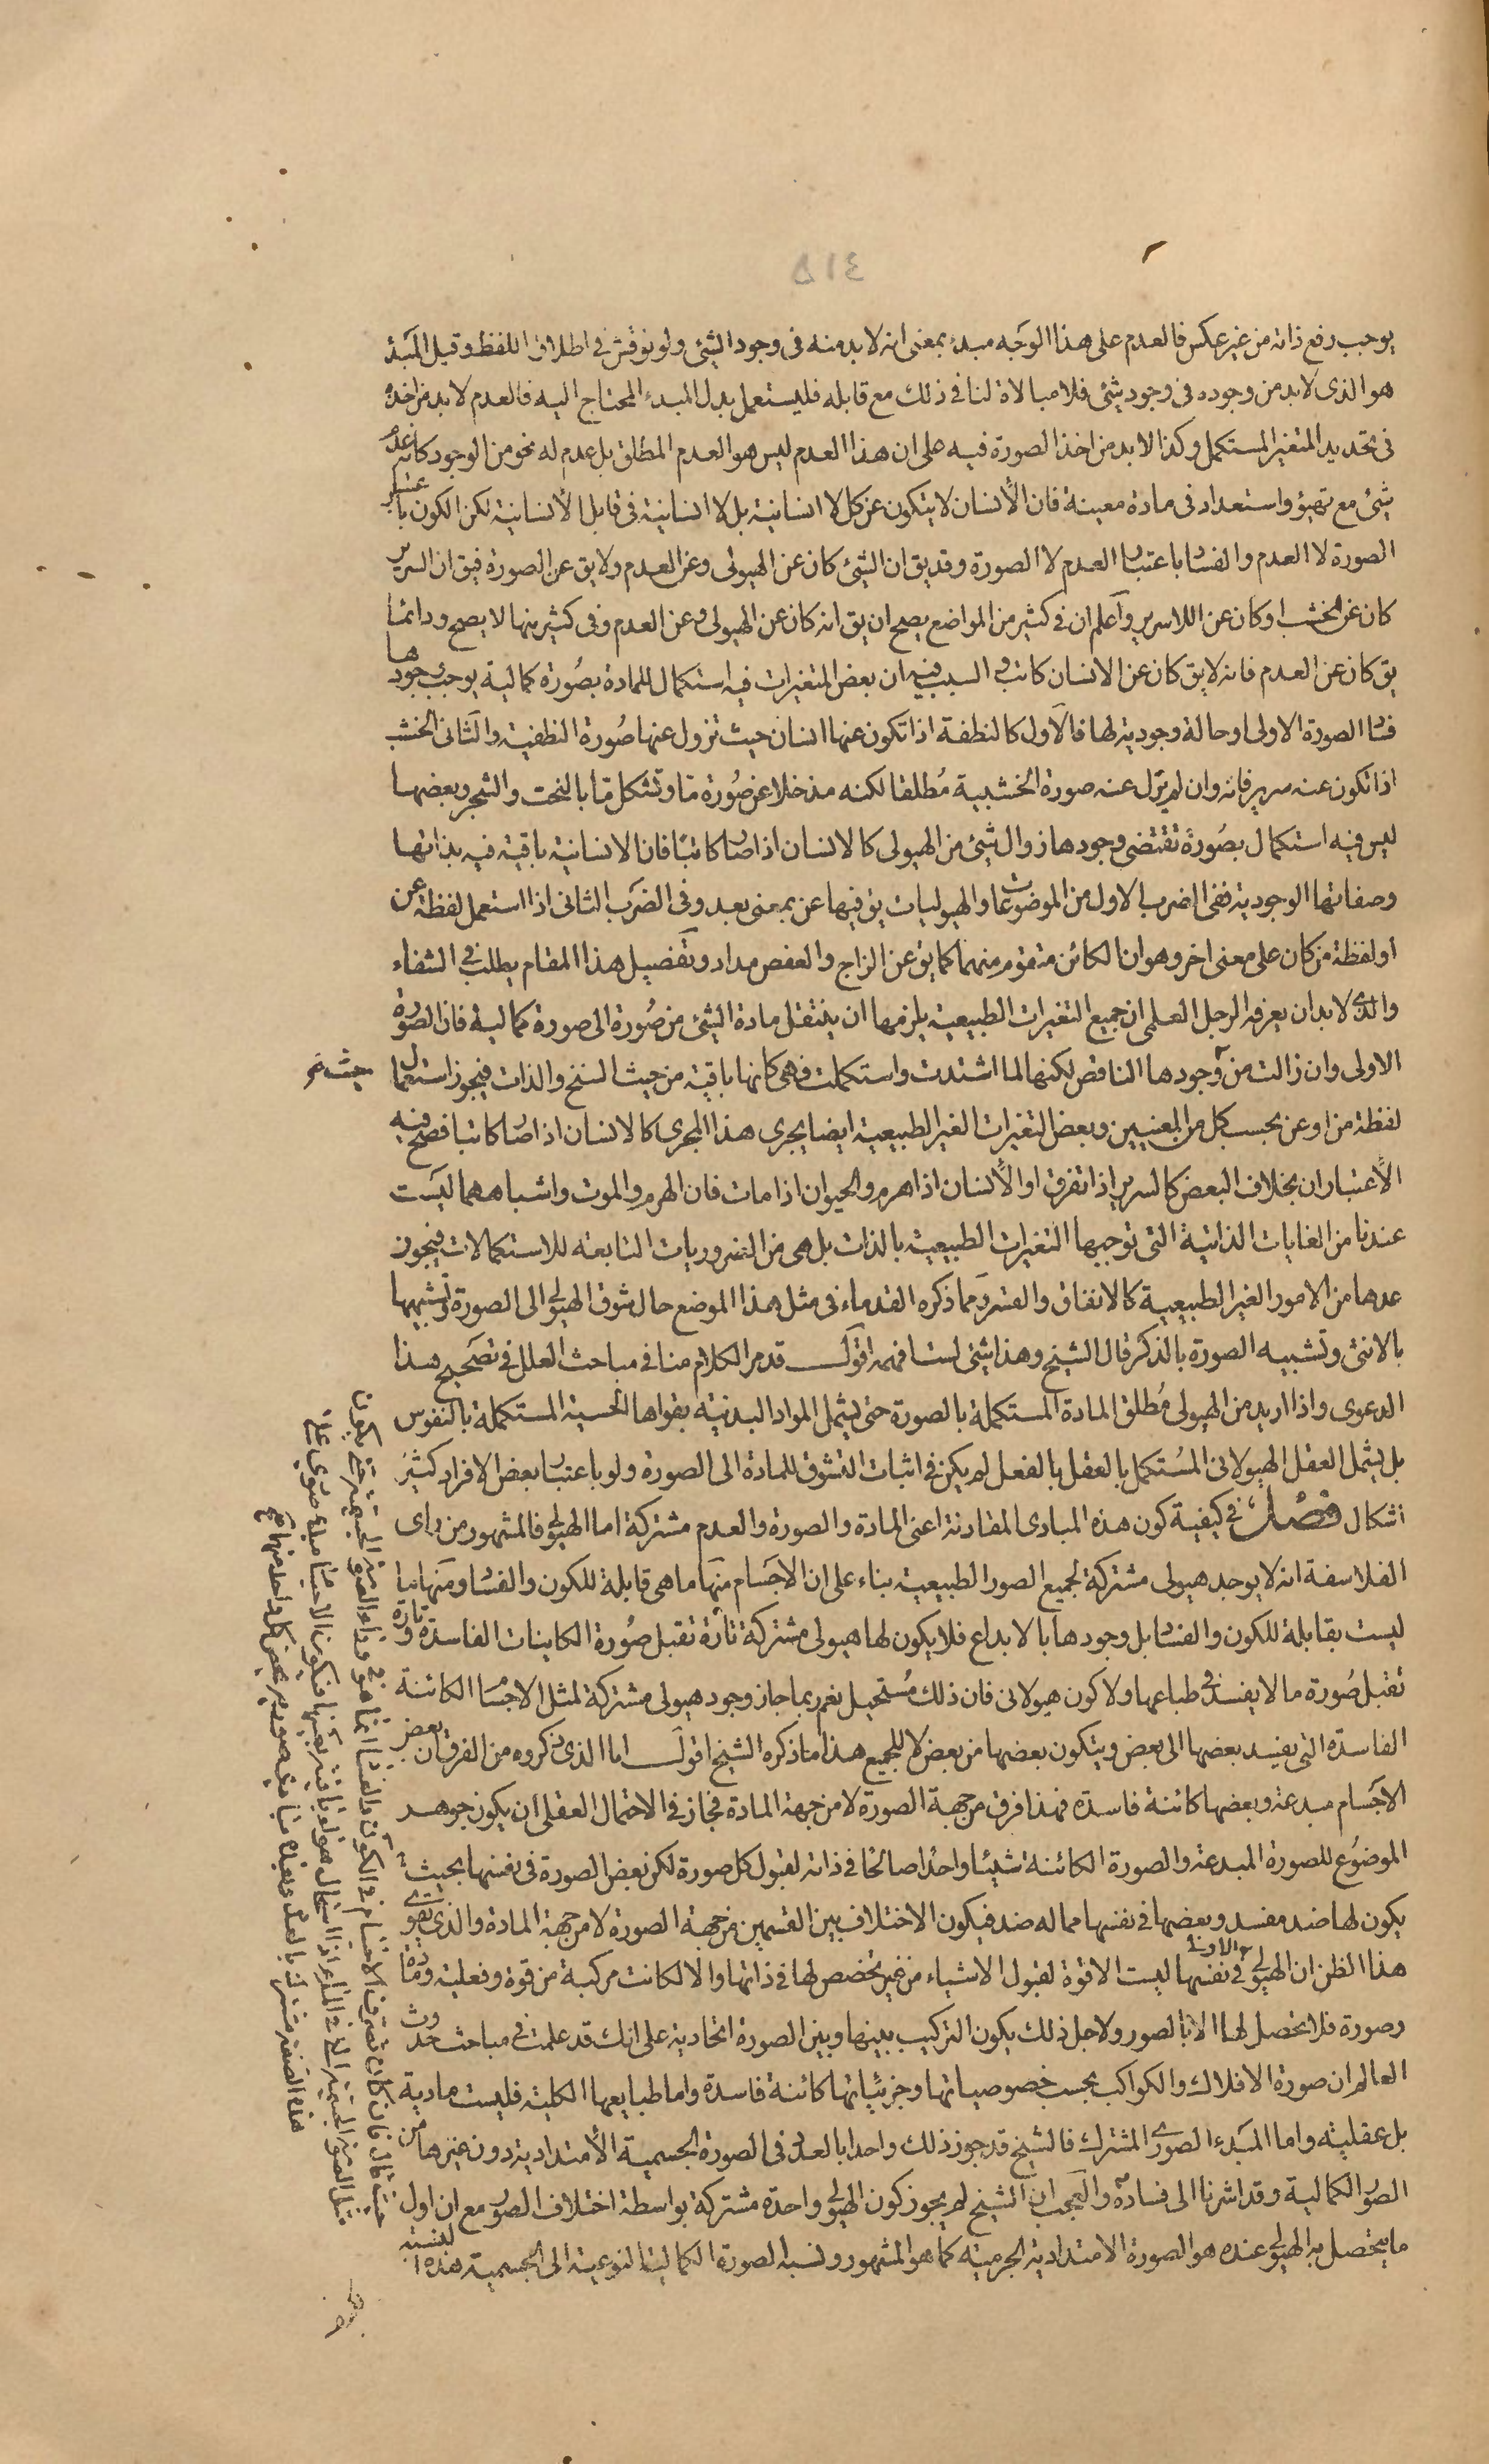 ٤١۵
يوجب رفع ذاته من غير عكس فالعدم على هذا الوجه مبدء بمعنى انه لابد منه فى وجود الشئ ولو نوقش فى اطلاق اللفظ وقيل المبدء
هو الذى لابد من وجوده فى وجود شئ فلا مبالاة لنا فى ذلك مع قابله فليستعمل بدل المبدء المحتاج اليه فالعدم لابد من اخذه
فى تحديد المتغير المستكمل وكذا لابد من اخذ الصورة فيه على ان هذا العدم ليس هو العدم المطلق بل عدم له نحو من الوجود كانه عدم
شئ مع تهيؤ واستعداد فى مادة معينة فان الأنسان لا يتكون عن كل لا انسانية بل لا انسانية فى قابل الأنسانية لكن الكون باعتبار
الصورة لا العدم والفسا باعتبا العدم لا الصورة وقد يق ان الشئ كان عن الهيولى وعن العدم ولا يق عن الصورة فيق ان السرير
كان عن الخشب او كان عن اللا سرير وآعلم ان فى كثير من المواضع يصح ان يق انه كان عن الهيولى وعن العدم وفى كثير منها لا يصح ودائما
يق كان عن العدم فانه لا يق كان عن الانسان كاتب و السبب فيه ان بعض المتغيرات فيه استكمال للمادة بصورة كمالية يوجب وجودها
فسا الصورة الاولى او حالة وجودية لها فالآول كالنطفة اذا تكون عنها انسان حيث تزول عنها صورة النطفية والثانى الخشب
اذا تكون عنه سرير فانه وان لم يزل عنه صورة الخشبية مطلقا لكنه مذ خلا عن صورة ما وتشكل ما بالنحت والشجر وبعضها
ليس فيه استكمال بصورة تقتضى وجودها زوال شئ من الهيولى كالانسان اذا صا كاتبا فان الانسانية باقية فيه بذاتها
وصفاتها الوجودية ففى الضرب الاول من الموضوعات والهيوليات يق فيها عن بمعنى بعد وفى الضرب الثانى اذا استعمل لفظة عن
او لفظة من كان على معنى اخر وهو ان الكائن متقوم منهما كما يق عن الزاج والعفص مداد وتفصيل هذا المقام يطلب فى الشفاء
والذى لابد ان يعرفه الرجل العلمى ان جميع التغيرات الطبيعية يلزمها ان ينتقل مادة الشئ من صورة الى صورة كمالية فان الصورة
الاولى وان زالت من وجودها الناقص لكنها لما اشتدت واستكملت فهى كانها باقية من حيث السنخ والذات فيجوز استعمال
لفظة من او عن بحسب كل من المعنيين وبعض التغيرات الغير الطبيعية ايضا يجرى هذا المجرى كالانسان اذا صا كاتبا فصح فيه
الأعتباران بخلاف البعض كالسرير اذا تفرق او الأنسان اذا هرم والحيوان اذا مات فان الهرم والموت واشباههما ليست
عندنا من الغايات الذاتية التى توجبها التغيرات الطبيعية بالذات بل هى من الضروريات التابعة للاستكمالات فيجوز
عدها من الامور الغير الطبيعية كالاتفاق والقسر ومما ذكره القدماء فى مثل هذا الموضع حال شوق الهيولى الى الصورة وتشبيهها
بالانثى وتشبيه الصورة بالذكر قال الشيخ وهذا شئ لست افهمه اقول قد مر الكلام منا فى مباحث العلل فى تصحيح هذا
الدعوى واذا اريد من الهيولى مطلق المادة المستكملة بالصورة حتى يشمل المواد البدنية بقواها الحسية المستكملة بالنفوس
بل يشمل العقل الهيولانى المستكمل بالعقل بالفعل لم يكن فى اثبات التشوق للمادة الى الصورة ولو باعتبا بعض الافراد كثير
اشكال فصل فى كيفية كون هذه المبادى المقارنة اعنى المادة والصورة والعدم مشتركة اما الهيولى فالمشهور من راى
الفلاسفة انه لا يوجد هيولى مشتركة لجميع الصور الطبيعية بناء على ان الاجسام منها ما هى قابلة للكون والفسا ومنها ما
ليست بقابلة للكون والفسا بل وجودها بالابداع فلا يكون لها هيولى مشتركة تارة تقبل صورة الكاينات الفاسدة وتارة
تقبل صورة ما لا يفسد فى طباعها ولا كون هيولانى فان ذلك مستحيل نعم ربما جاز وجود هيولى مشتركة لمثل الاجسا الكائنة
الفاسدة التى يفسد بعضها الى بعض ويتكون بعضها من بعض لا للجميع هذا ما ذكره الشيخ اقول اما الذى ذكروه من الفرق ان بعض
الاجسام مبدعة وبعضها كائنة فاسدة فهذا فرق من جهة الصورة لا من جهة المادة فجاز فى الاحتمال العقلى ان يكون جوهر
الموضوع للصورة المبدعة والصورة الكائنة شيئا واحدا صالحا فى ذاته لقبول كل صورة لكن بعض الصورة فى نفسها بحيث
يكون لها ضد مفسد وبعضها فى نفسها مما له ضد فيكون الاختلاف بين القسمين من جهة الصورة لا من جهة المادة والذى يقوى
هذا الظن ان الهيولى الاولى فى نفسها ليست الا قوة لقبول الاشياء من غير تخصص لها فى ذاتها والا لكانت مركبة من قوة وفعلية ومادة
وصورة فلا تحصل لها الا بالصور ولاجل ذلك يكون التركيب بينها وبين الصورة اتحادية على انك قد علمت فى مباحث حدوث
العالم ان صورة الافلاك والكواكب بحسب خصوصياتها وجزئياتها كائنة فاسدة واما طبايعها الكلية فليست مادية
بل عقلية واما المبدء الصورى المشترك فالشيخ قد جوز ذلك واحدا بالعدد فى الصورة الجسمية الأمتدادية دون غيرها من
الصور الكمالية وقد اشرنا الى فساده والعجب ان الشيخ لم يجوز كون الهيولى واحدة مشتركة بواسطة اختلاف الصور مع ان اول
ما يتحصل به الهيولى عنده هو الصورة الامتدادية الجرمية كما هو المشهور ونسبة الصورة الكمالية النوعية الى الجسمية هذه النسبة